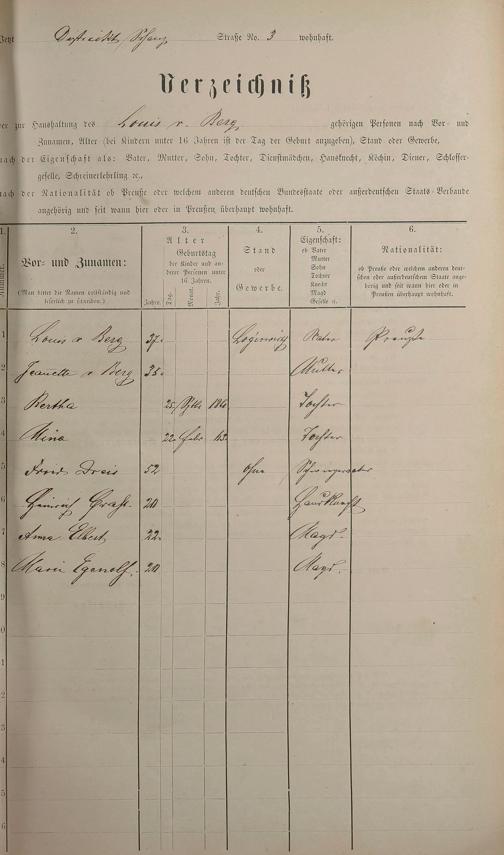 Distrikt Schanz Straße No. 3 wohnhaft.
Verzeichniß
der zur Haushaltung des Louis v. Berg gehörigen Personen nach Vor- und
Zunamen, Alter (bei Kindern unter 16 Jahren ist der Tag der Geburt anzugeben), Stand oder Gewerbe,
nach der Eigenschaft als: Vater, Mutter, Sohn, Tochter, Dienstmädchen, Hausknecht, Köchin, Diener, Schlosser-
geselle, Schreinerlehrling ꝛc.,
nach der Nationalität ob Preuße oder welchem anderen deutschen Bundesstaate oder außerdeutschen Staats-Verbande
angehörig und seit wann hier oder in Preußen überhaupt wohnhaft.
1. 2. 3. 4. 5. 6.
Nummer.
Vor- und Zunamen:
(Man bittet die Namen vollständig und
leserlich zu schreiben.)
Alter
Geburtstag
der Kinder und an-
derer Personen unter
16 Jahren.
Jahre. Tag. Monat. Jahr.
Stand
oder
Gewerbe.
Eigenschaft:
ob Vater
Mutter
Sohn
Tochter
Knecht
Magd
Geselle ꝛc.
Nationalität:
ob Preuße oder welchem anderen deut-
schen oder außerdeutschen Staate ange-
hörig und seit wann hier oder in
Preußen überhaupt wohnhaft.
1 Louis v Berg 37. Vater Preuße
2 Jeanette v Berg Mutter
3 Bertha 25. Tochter
4 Mina 22. Febr Tochter
5 52 ohne Schwiegervater
6 Heinrich 20 Hausknecht
7 Anna Elbert 22. Magd.
8 Marie Egenolf. 20 Magd.
9
0
1
2
3
4
5
6